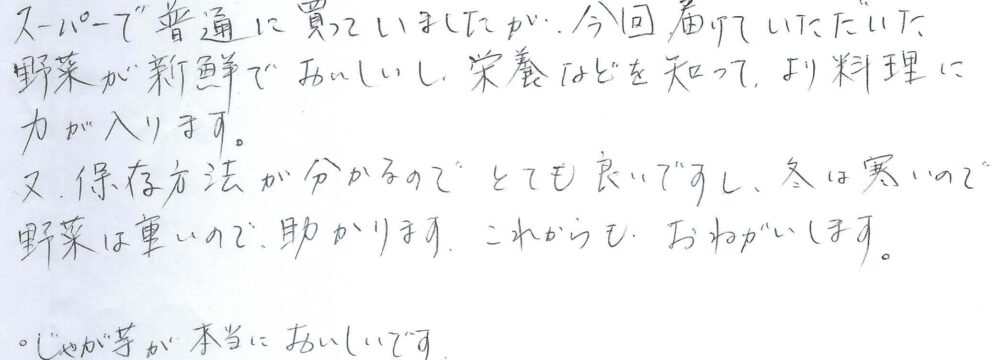 スーパーで普通に買っていましたが、今回届けていただいた
野菜が新鮮でおいしいし、栄養などを知って、より料理に
力が入ります。
又、保存方法が分かるのでとても良いですし、冬は寒いので
野菜は重いので、助かります。これからも、おねがいします。
○じゃが芋が本当においしいです。